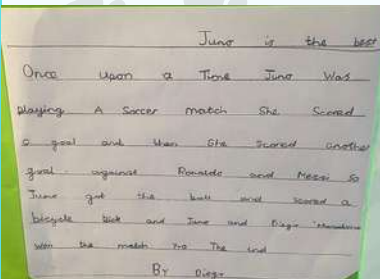 Juno is the best
Once upon a Time Juno Was
playing A Soccer match She Scored
a goal and then She Scored another
goal against Ronaldo and Messi So
Juno got the ball and scored a
bicycle kick and Juno and Diego
won the match 7to The end
By Diego